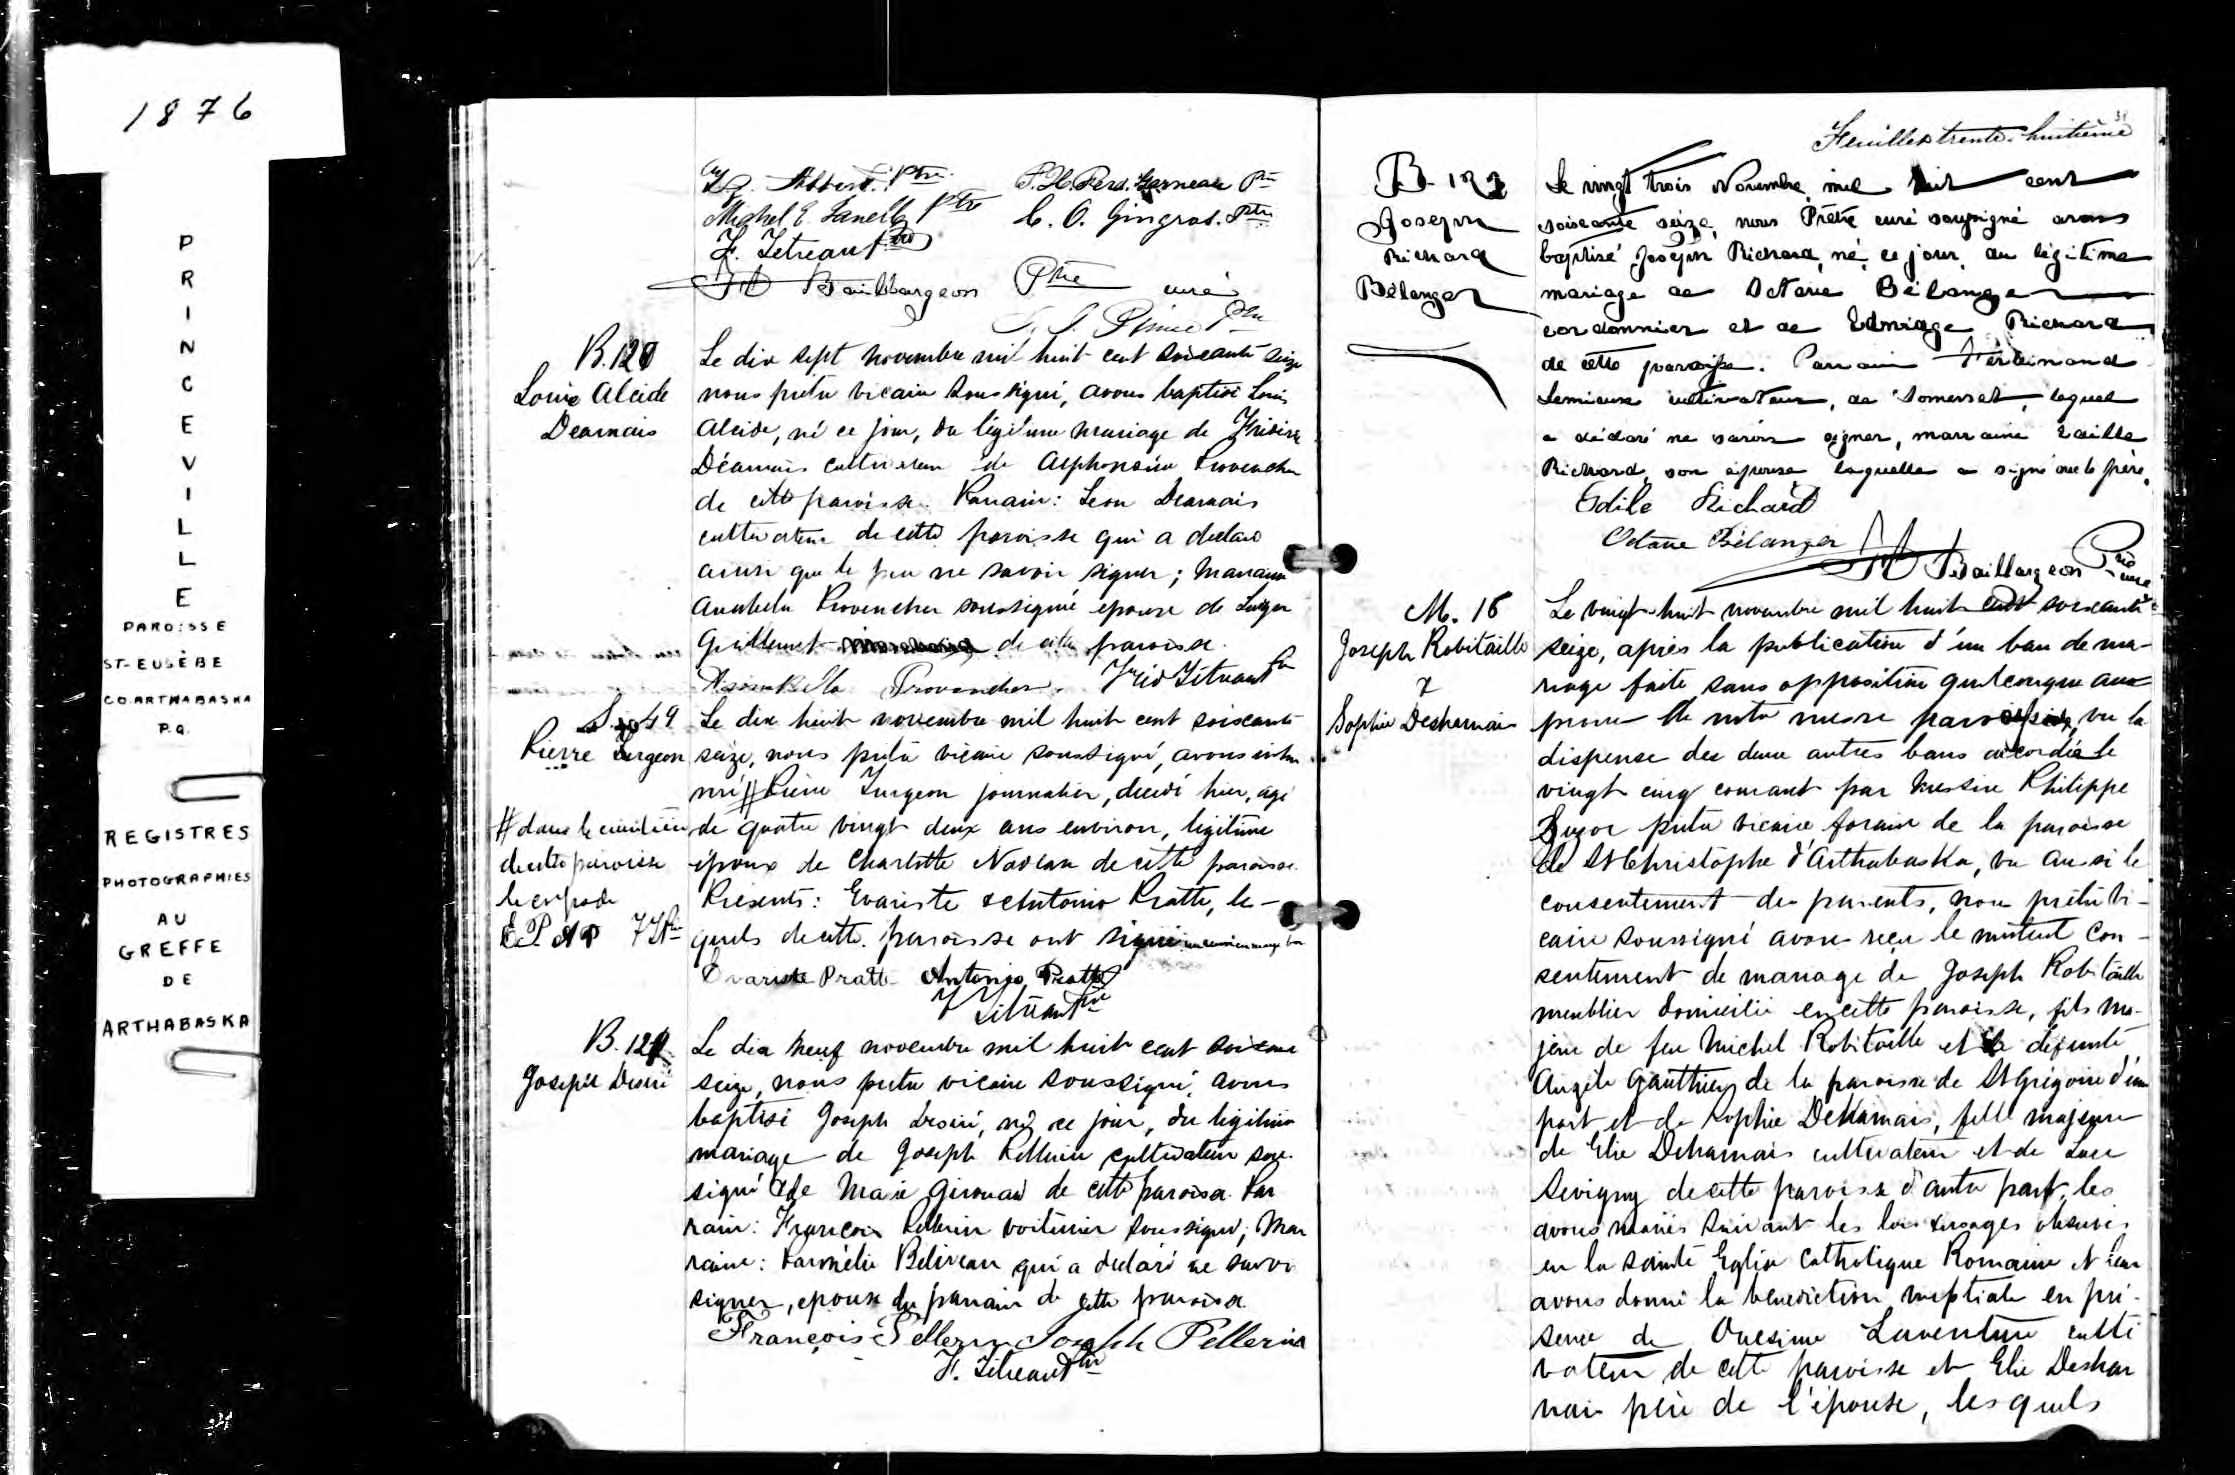 1876
PRINCEVILLE
PAROISSE
ST-EUSÈBE
CO. ARTHABASKA
P.Q.
REGISTRES
PHOTOGRAPHIES
AU
GREFFE
DE
ARTHABASKA
Ptre P. H. Ferd. Garneau Ptre
Michel E. Ptre C. O. Gingras Ptre
F. Tétreau Ptre
Baillargeon Ptre curé
Prince Ptre
B. 120
Louis Alcide
Dearnais
Le dix sept novembre mil huit cent soixante seize
nous prêtre vicaire soussigné, avons baptisé Louis
Alcide, né ce jour, du légitime mariage de
Déarnais cultivateur de Alphonsine Provencher
de cette paroisse. Parrain: Leon Dearnais
cultivateur de cette paroisse qui a declaré
ainsi que le père ne savoir signer; Marraine
Provencher soussignée epouse de Ludger
de cette paroisse.
Provencher. Tétreau Ptre
S. 49
Pierre Turgeon
Le dix huit novembre mil huit cent soixante
seize, nous prêtre vicaire soussigné, avons inhu
mé # Pierre Turgeon journalier, decedé hier, agé
de quatre vingt deux ans environ, legitime
époux de Charlotte Nadeau de cette paroisse.
Présents: Evariste & Antonio Pratte, les-
quels de cette paroisse ont signé
# dans le cimetière
de cette paroisse
le corps de
E. P. A P F T Ptre
Evariste Pratte Antonio Pratte
F Tétreau Ptre
B. 121
Joseph Desiré
Le dix neuf novembre mil huit cent soixante
seize, nous prêtre vicaire soussigné, avons
baptisé Joseph Desiré, né ce jour, du légitime
mariage de Joseph Pellerin cultivateur sous-
signé & de Marie Girouard de cette paroisse. Par
rain: François Pellerin voiturier soussigné; Mar
raine: Parmélie Beliveau qui a déclaré ne savoir
signer, epouse du parrain de cette paroisse.
François Pellerin Joseph Pellerin
F. Tétreau Ptre
Feuillet trente-huitième
B. 122
Joseph
Richard
Bélanger
Le vingt trois Novembre mil huit cent
soixante seize, nous Prêtre curé soussigné avons
baptisé Joseph Richard, né, ce jour, du légitime
mariage de Octave Bélanger
cordonnier et de Edwidge Richard
de cette paroisse. Parrain Ferdinand
Lemieux cultivateur, de Somerset, lequel
a déclaré ne savoir signer, marraine Edille
Richard, son épouse, laquelle a signé avec le père.
Edile Richard
Octave Bélanger
Baillargeon Ptre curé
M. 16
Joseph Robitaille
&
Sophie Desharnais
Le vingt-huit novembre mil huit cent soixante
seize, après la publication d'un ban de ma-
riage faite sans opposition quelconque au
prone de notre messe paroissiale, vu la
dispense des deux autres bans accordée le
vingt cinq courant par Messire Philippe
Suzor prêtre vicaire forain de la paroisse
de St Christophe d'Arthabaska, vu aussi le
consentement des parents, nous prêtre vi-
caire soussigné avons reçu le mutuel con-
sentement de mariage de Joseph Robitaille
meublier domicilié en cette paroisse, fils ma-
jeur de feu Michel Robitaille et de défunte
Angèle Gauthier de la paroisse de St Grégoire d'une
part et de Sophie Deharnais, fille majeure
de Elie Deharnais cultivateur et de Luce
Sevigny de cette paroisse d'autre part, les
avons mariés suivant les lois & usages observés
en la sainte Eglise Catholique Romaine et leur
avons donné la bénédiction nuptiale en pré-
sence de Onesime Laventure culti
vateur de cette paroisse et Elie Deshar
nais père de l'épouse, lesquels